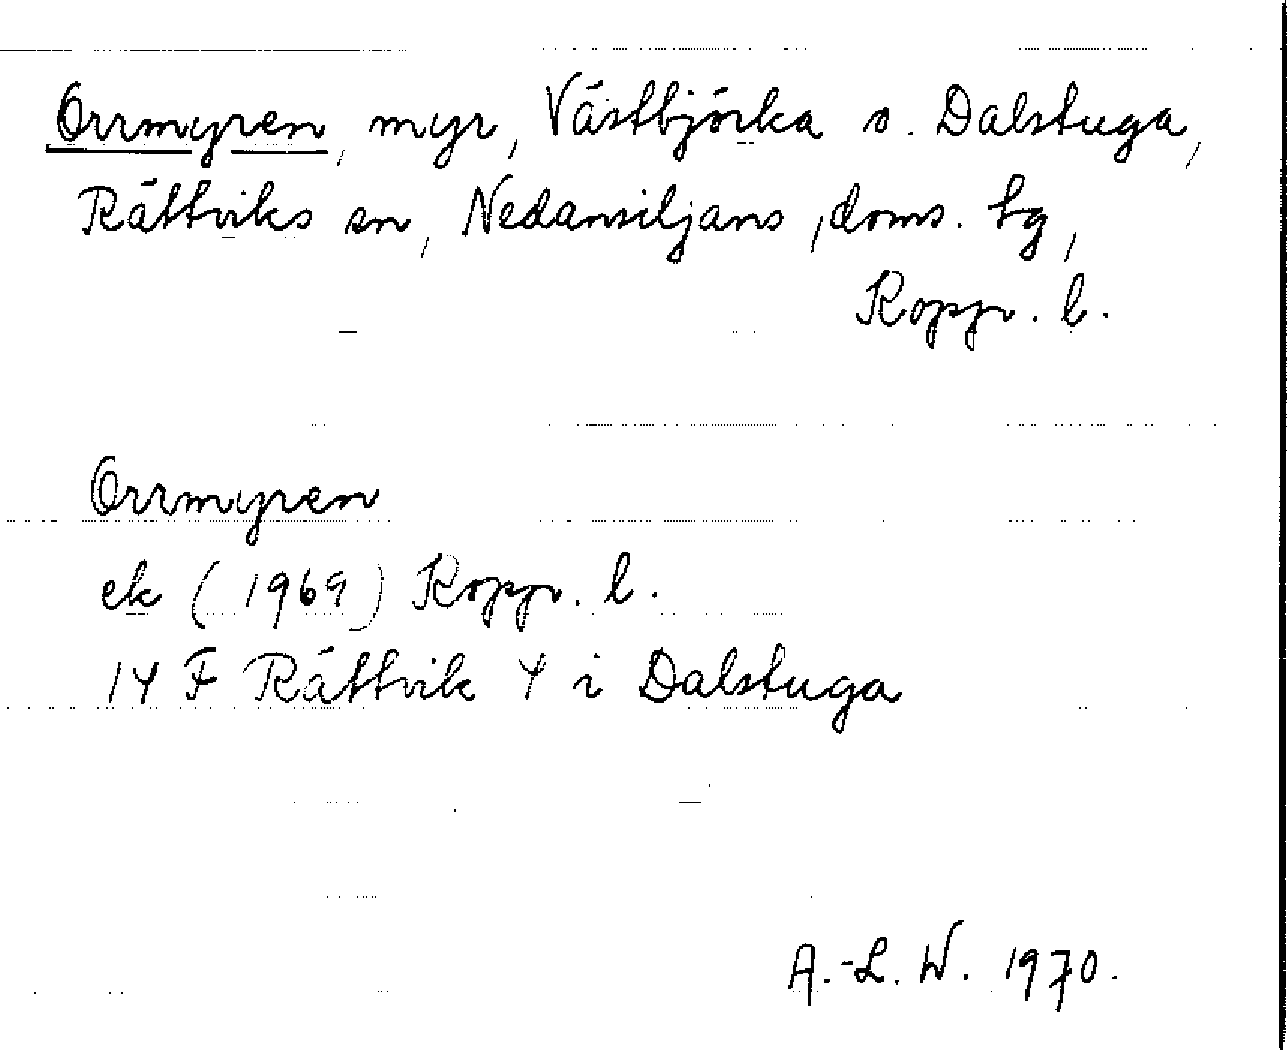 Orrmyren, myr, Västbjörka o. Dalstuga,
Rättviks sn, Nedansiljans ,doms. tg,
Kopp. l.
Orrmyren
ek (1969) Kopp. l.
14 F Rättvik 4 i Dalstuga
A.-L. W. 1970.